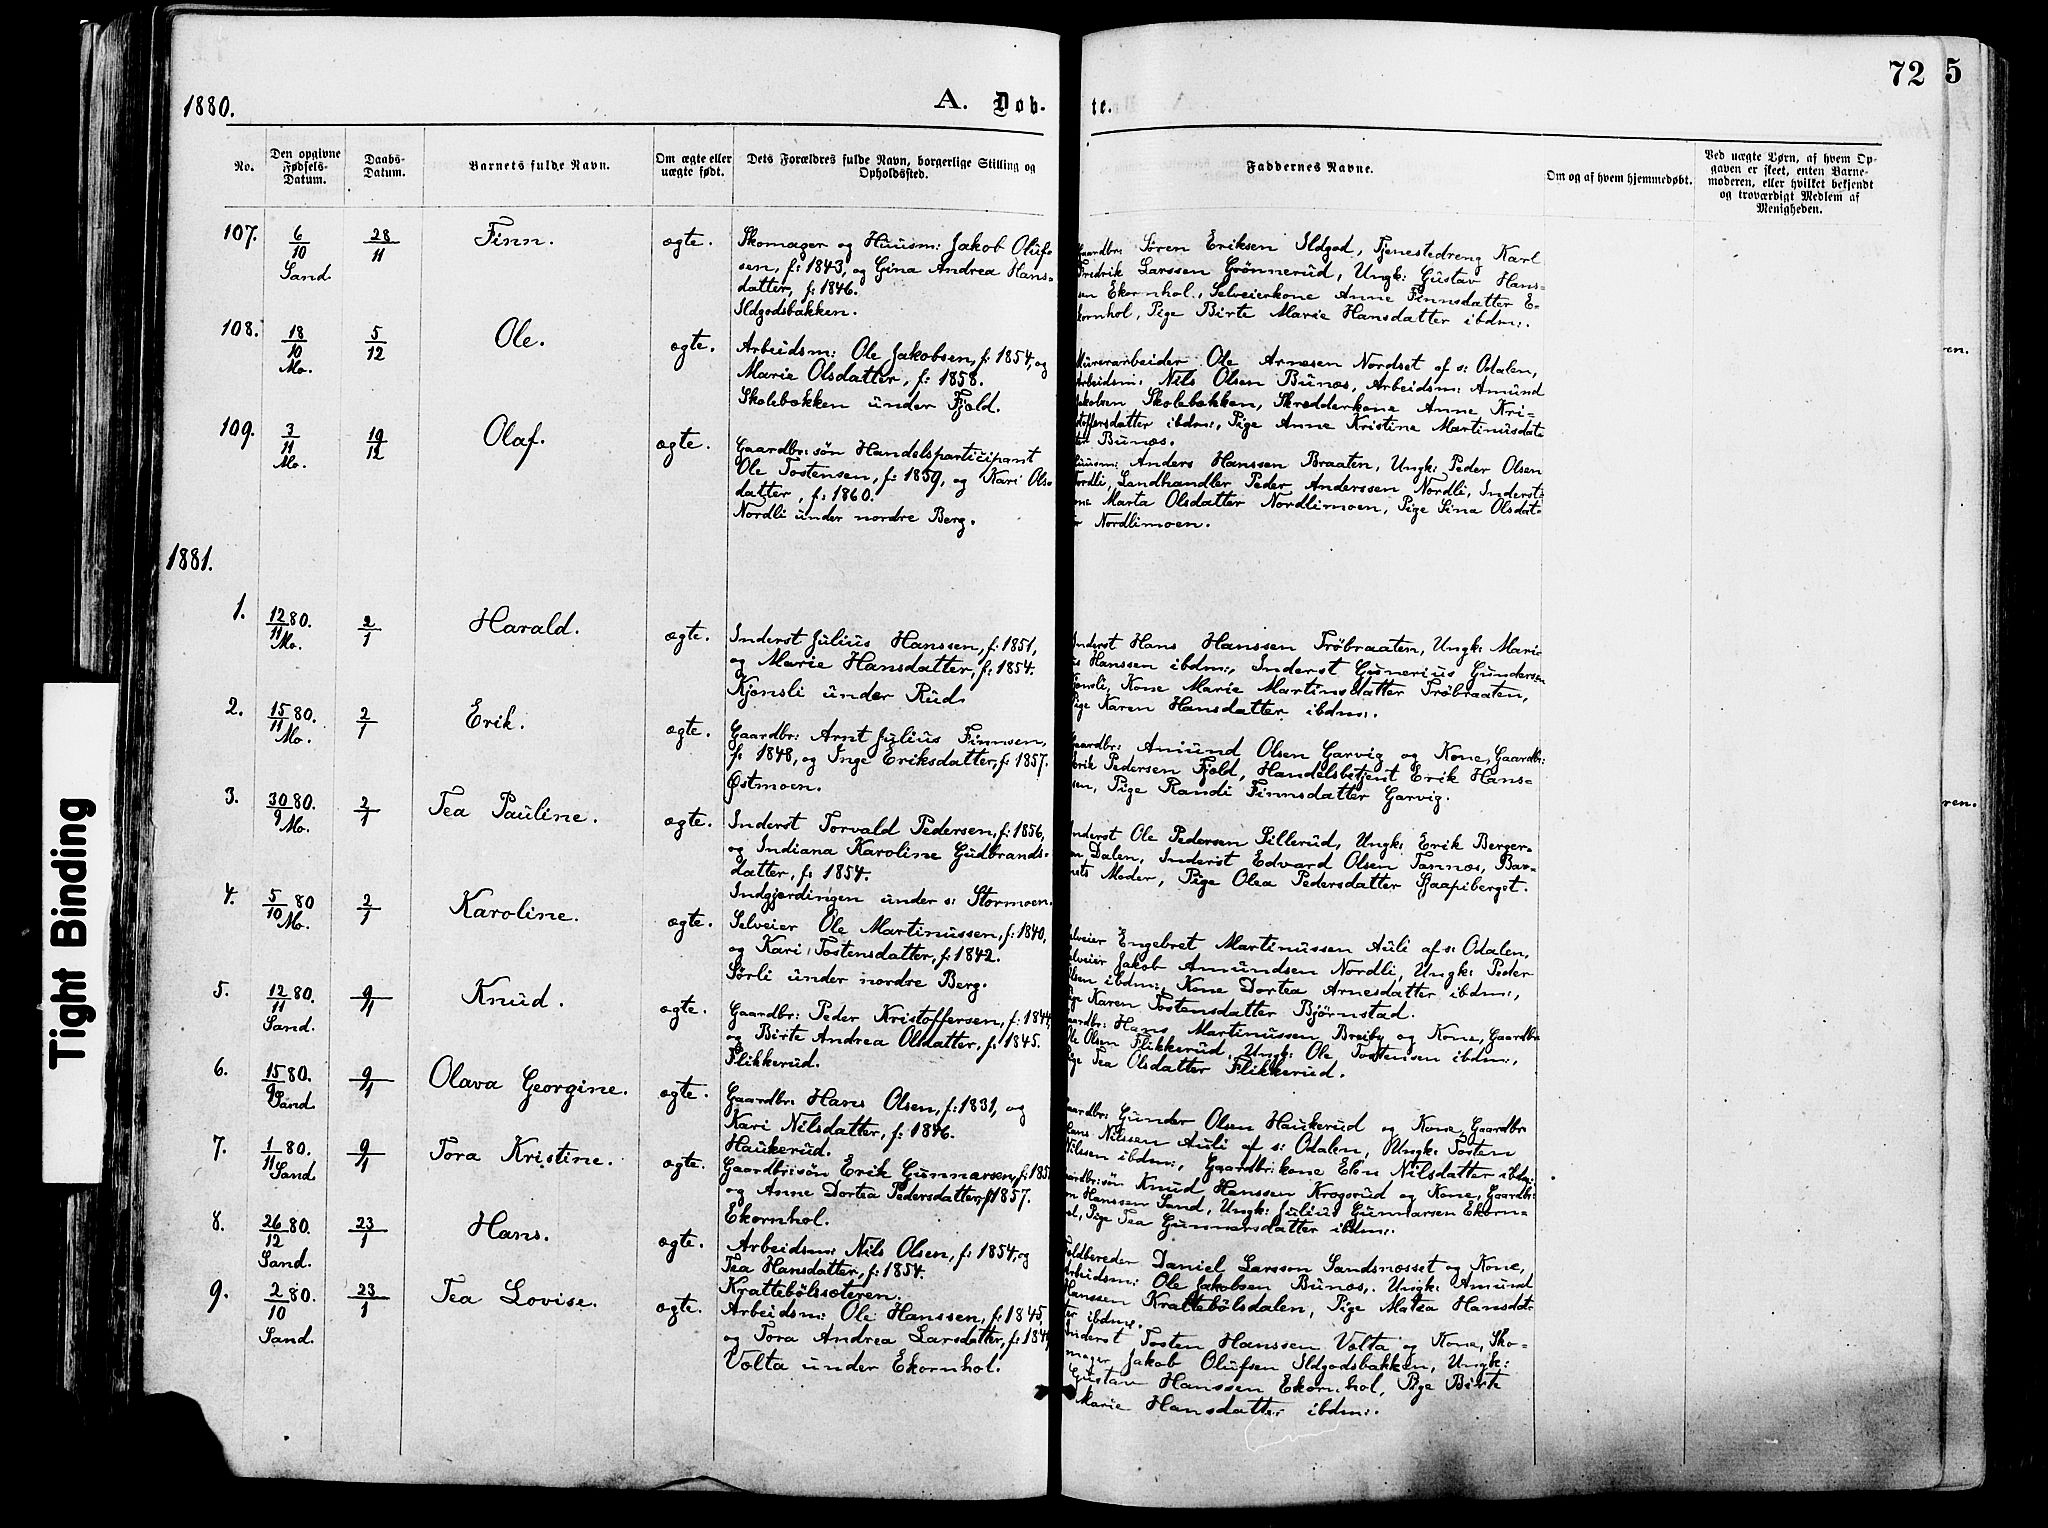 1880.
A. Døb-
te.
72
5
No.
Den opgivne Fødsels-Datum.
Daabs-Datum.
Barnets fulde Navn.
Om ægte eller uægte født.
Dets Forældres fulde Navn, borgerlige Stilling og Opholdssted.
Faddernes Navne.
Om og af hvem hjemmedøbt.
Ved uægte Børn, af hvem Op-
gaven er skeet, enten Barne-
moderen, eller hvilket bekjendt
og troværdigt Medlem af
Menigheden.
107. 6/10 Sand. 28/11 Finn. ægte.
Skomager og Huusm: Jakob Oluf-
sen, f: 1843, og Gina Andrea Hans-
datter, f: 1846.
Ildgodsbakken.
Gaardbr: Søren Eriksen Ildgod, Tjenestedreng Karl
Fredrik Larssen Grønnerud, Ungk: Gustav Hans-
sen Ekornhol, Selveierkone Anne Finnsdatter E-
kornhol, Pige Birte Marie Hansdatter ibdm:.
108. 18/10 Mo. 5/12 Ole. ægte.
Arbeidsm: Ole Jakobsen, f: 1854, og
Marie Olsdatter, f: 1858.
Skolebakken under Fjeld.
Murerarbeider Ole Arnesen Nordset af s: Odalen,
Arbeidsm: Nils Olsen Bunæs, Arbeidsm: Amund
Jakobsen Skolebakken, Skredderkone Anne Kri-
stoffersdatter ibdm:, Pige Anne Kristine Martinusdat-
ter Bunæs.
109. 3/11 Mo. 19/12 Olaf. ægte.
Gaardbr: søn Handelsparticipant
Ole Tostensen, f: 1859, og Kari Ols-
datter, f: 1860.
Nordli under nordre Berg.
Huusm: Anders Hanssen Braaten, Ungk: Peder Olsen
Nordli, Landhandler Peder Anderssen Nordli, Inderst-
kone Marta Olsdatter Nordlimoen, Pige Sina Olsdat-
ter Nordlimoen.
1881.
1. 12/11 80. Mo. 2/1 Harald. ægte.
Inderst Julius Hanssen, f: 1851,
og Marie Hansdatter, f: 1854.
Kjønsli under Rud.
Inderst Hans Hanssen Trøbraaten, Ungk: Mari-
us Hanssen ibdm:, Inderst Gunerius Gundersen
Kjønsli, Kone Marie Martinsdatter Trøbraaten,
Pige Karen Hansdatter ibdm:.
2. 15/11 80. Mo. 2/1 Erik. ægte.
Gaardbr: Arnt Julius Finnsen,
f: 1848, og Inge Eriksdatter, f: 1857.
Østmoen.
Gaardbr: Amund Olsen Garvig og Kone, Gaardbr:
Erik Pedersen Fjeld, Handelsbetjent Erik Hans-
sen, Pige Randi Finnsdatter Garvig.
3. 30/9 80. Mo. 2/1 Tea Pauline. ægte.
Inderst Torvald Pedersen, f: 1856,
og Indiana Karoline Gudbrands-
datter, f: 1854.
Indgjerdingen under s: Stormoen.
Inderst Ole Pedersen Sillerud, Ungk: Erik Berger-
sen Dalen, Inderst Edvard Olsen Tannæs, Bar-
nets Moder, Pige Olea Pedersdatter Skaapiberget.
4. 5/10 80 Mo. 2/1 Karoline. ægte.
Selveier Ole Martinussen, f: 1840,
og Kari Tostensdatter, f: 1842.
Sørli under nordre Berg.
Selveier Engebret Martinussen Auli af s: Odalen,
Selveier Jakob Amundsen Nordli, Ungk: Peder
Olsen ibdm:, Kone Dortea Arnesdatter ibdm:,
Pige Karen Tostensdatter Bjørnstad.
5. 12/11 80. Sand. 9/1 Knud. ægte.
Gaardbr: Peder Kristoffersen, f: 1844,
og Birte Andrea Olsdatter, f: 1845.
Flikkerud.
Gaardbr: Hans Martinussen Breiby og Kone, Gaardbr:
Ole Olsen Flikkerud, Ungk: Ole Tostensen ibdm:,
Pige Tea Olsdatter Flikkerud.
6. 15/9 80. Sand 9/1 Olava Georgine. ægte.
Gaardbr: Hans Olsen, f: 1831, og
Kari Nilsdatter, f: 1846.
Haukerud.
Gaardbr: Gunder Olsen Haukerud og Kone, Gaardbr:
Hans Nilssen Auli af s: Odalen, Ungk: Tosten
Nilssen ibdm:, Gaardbr: kone Elen Nilsdatter ibdm:
7. 1/11 80. Sand 9/1 Tora Kristine. ægte.
Gaardbr: søn Erik Gunnarsen, f: 185
og Anne Dortea Pedersdatter, f: 1857.
Ekornhol.
Gaardbr: søn Knud Hanssen Krogsrud og Kone, Gaardbr:
Hanssen Sand, Ungk: Julius Gunnarsen Ekorn-
hol, Pige Tea Gunnarsdatter ibdm:.
8. 26/12 80. Sand. 23/1 Hans. ægte.
Arbeidsm: Nils Olsen, f: 1854, og
Tea Hansdatter, f: 1854.
Krattebølssæteren.
Feldbereder Daniel Larsson Sandsnæsset og Kone,
Arbeidsm: Ole Jakobsen Bunæs, Ungk: Amund
Hanssen Krattebølsdalen, Pige Matea Hansdat-
ter ibdm:.
9. 2/10 80. Sand. 23/1 Tea Lovise. ægte.
Arbeidsm: Ole Hanssen, f: 1845,
og Tora Andrea Larsdatter, f: 184
Volta under Ekornhol.
Inderst Tosten Hanssen Volta og Kone, Sko-
mager Jakob Olufsen Ildgodsbakken, Ungk:
Gustav Hanssen Ekornhol, Pige Birte
Marie Hansdatter ibdm:.
ren.
ren.
Tight Binding